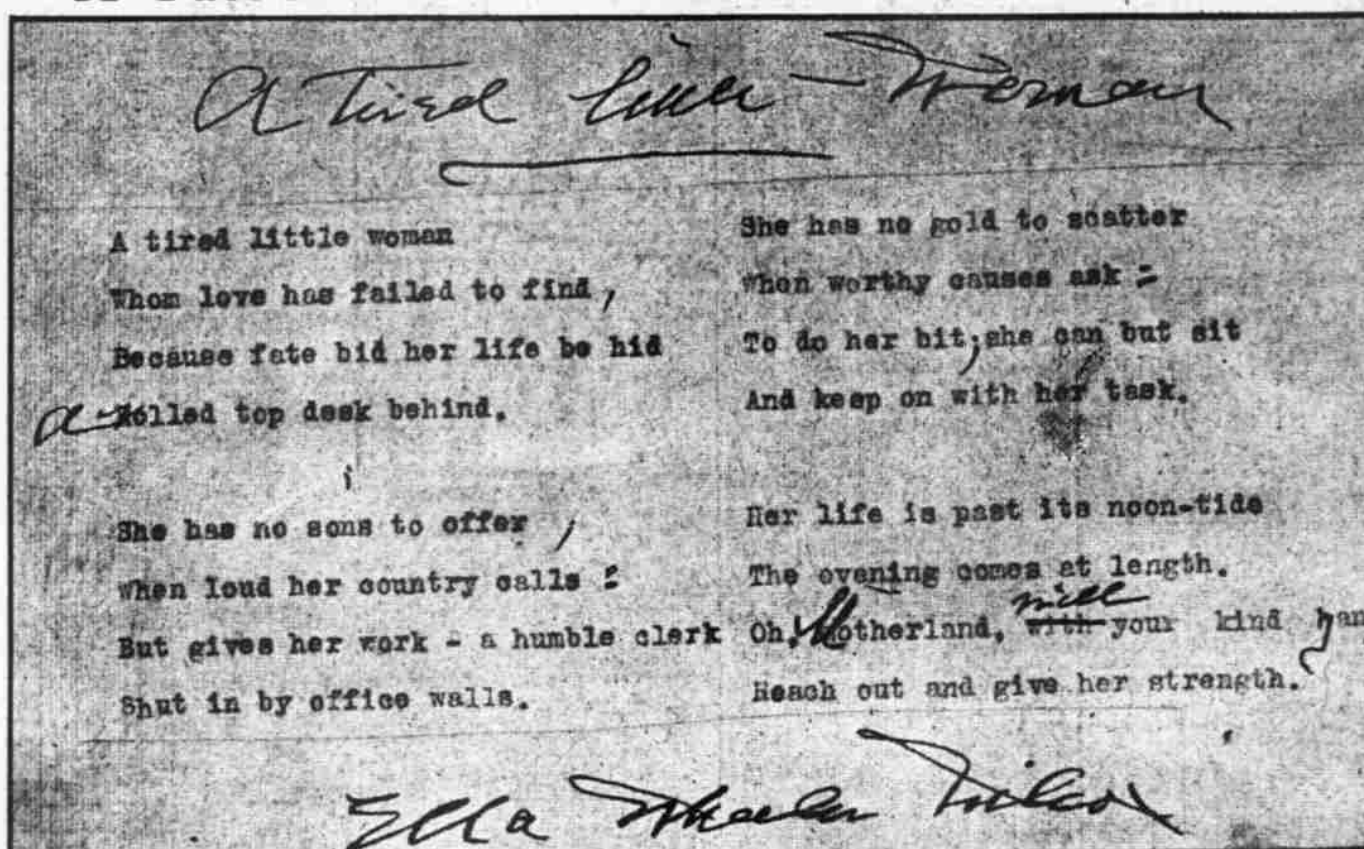 A Tired Little Woman
A tired little woman
Whom love has failed to find,
Because fate bid her life be hid
a Rolled top desk behind.
She has no sons to offer,
When loud her country calls:
But gives her work - a humble clerk
Shut in by office walls.
She has no gold to scatter
When worthy causes ask:
To do her bit, she can but sit
And keep on with her task.
Her life is past its noon-tide
The evening comes at length.
Oh, Motherland, will with your kind han
Reach out and give her strength.
Ella Wheeler Wilcox